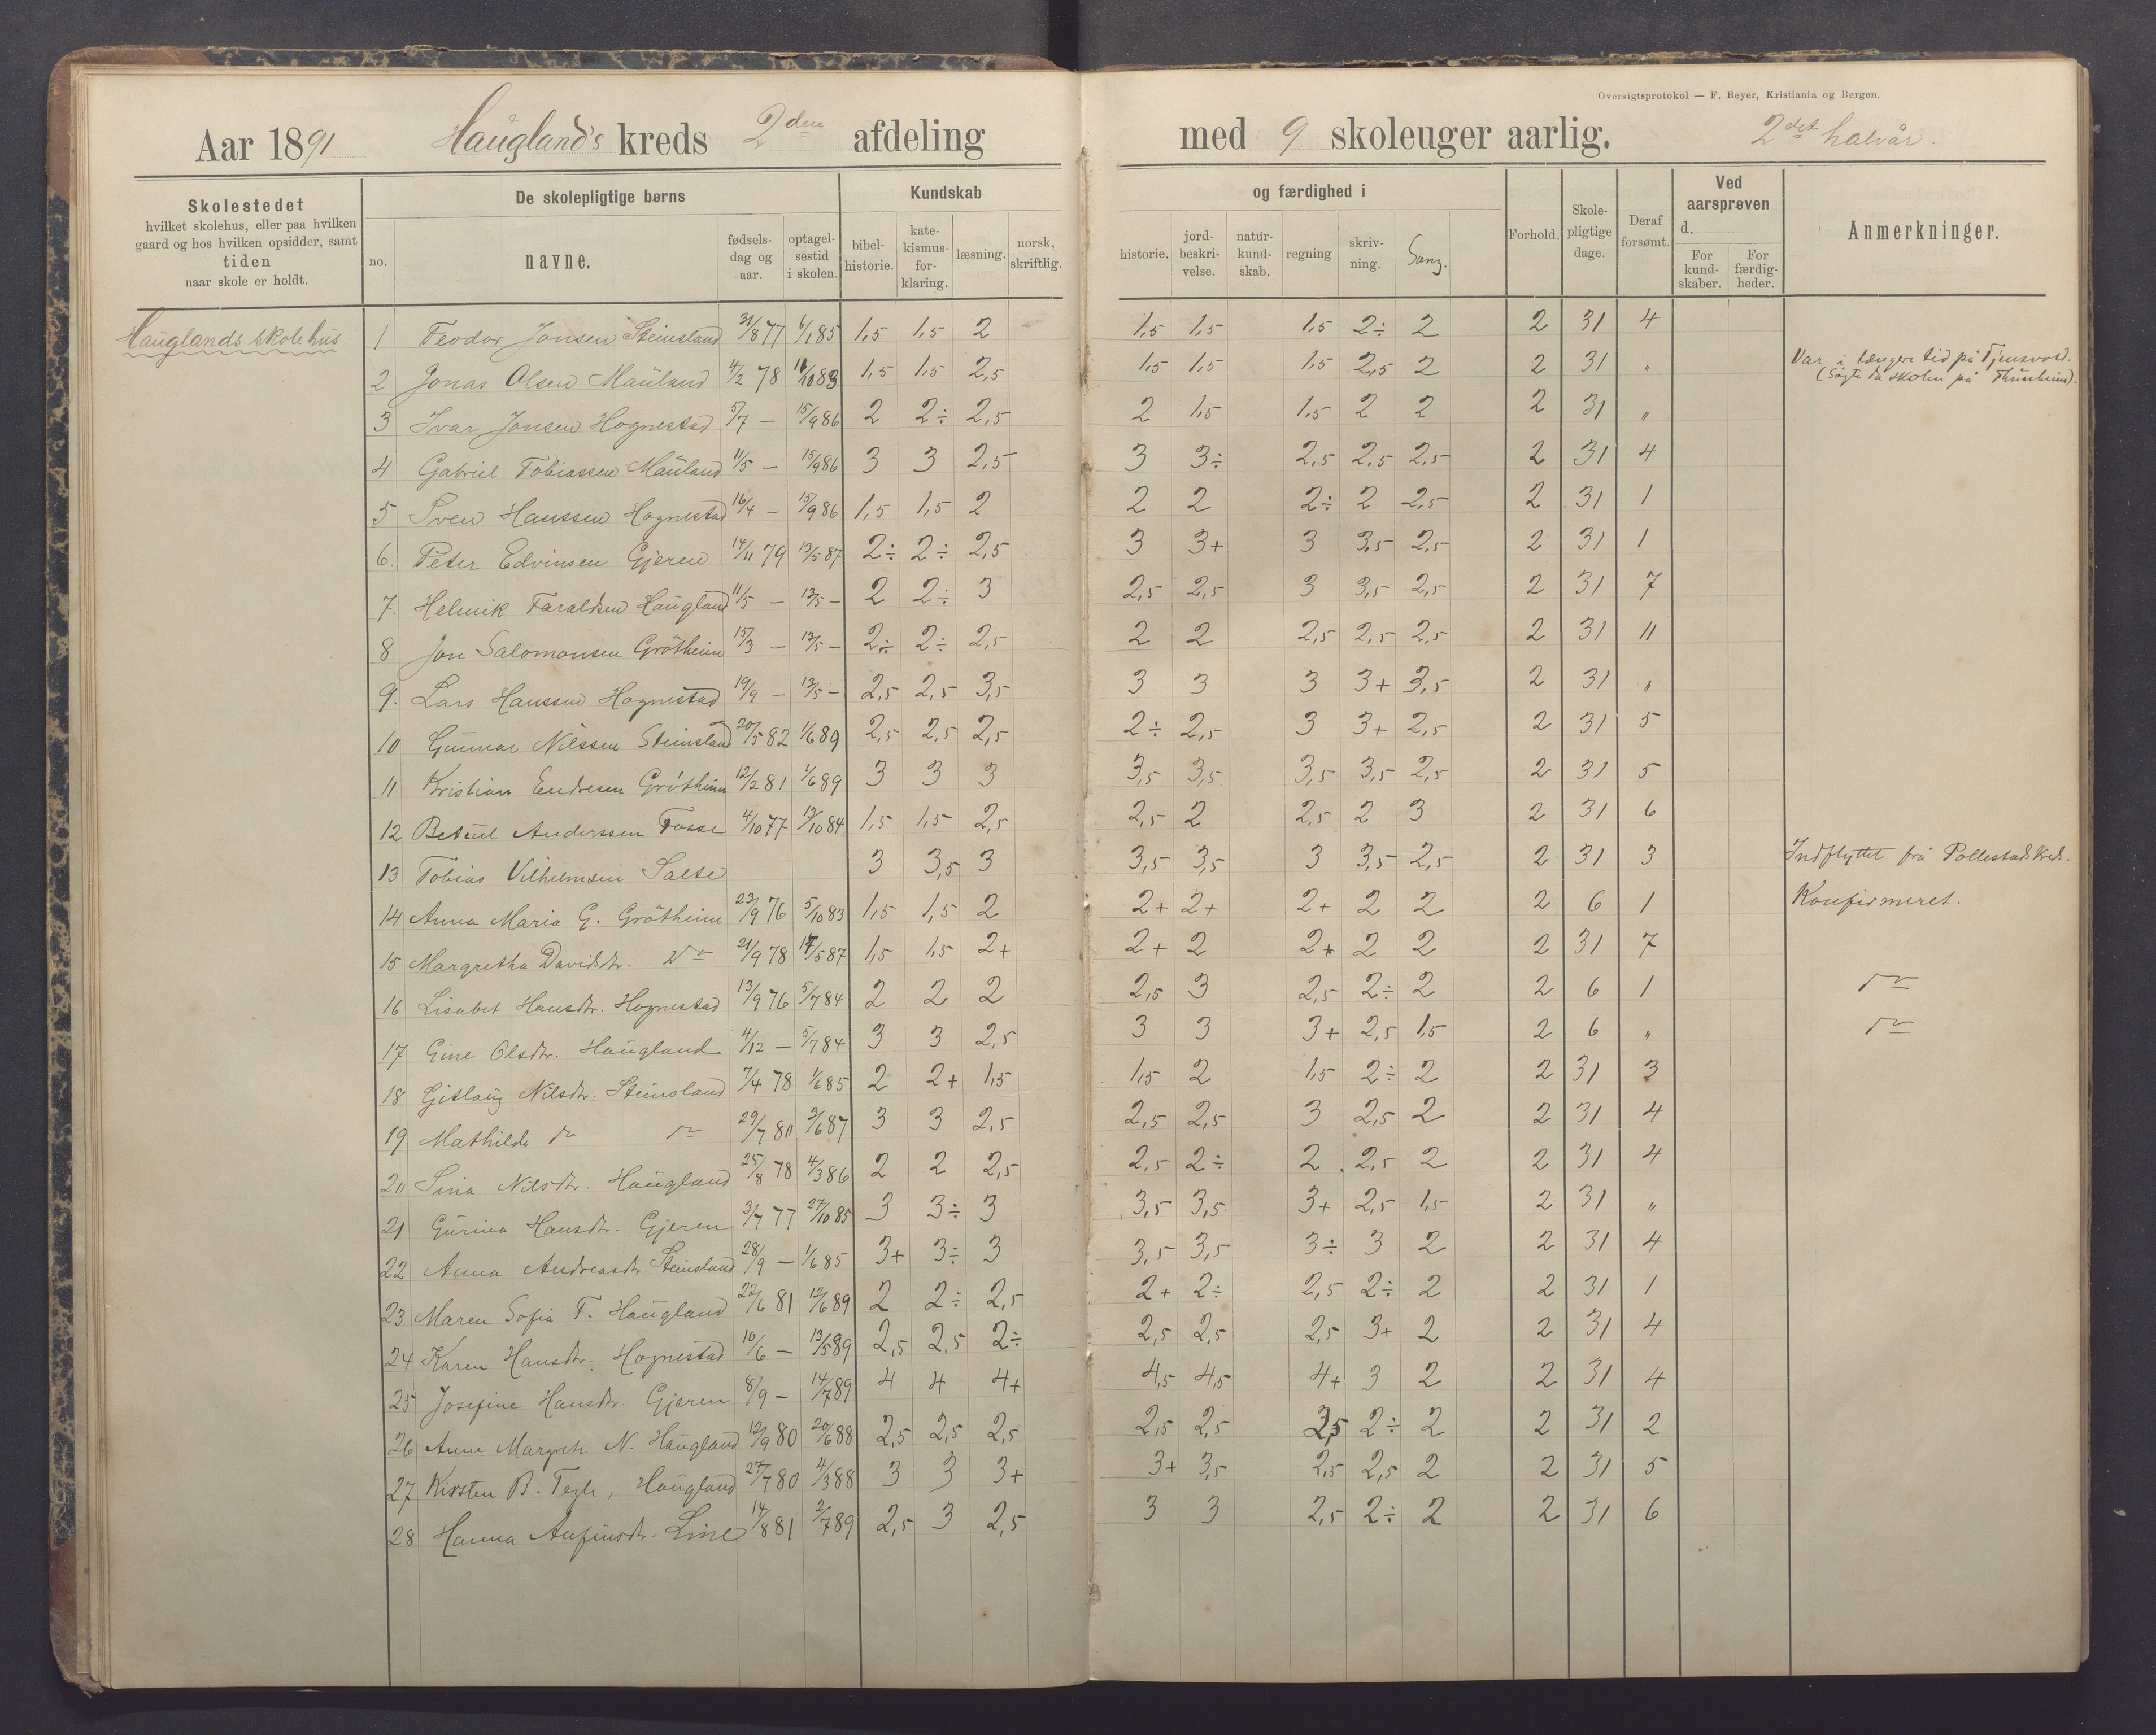 Oversigtsprotokol — F. Beyer, Kristiania og Bergen.
Aar 1891 Haugland's kreds 2den afdeling med 9 skoleuger aarlig. 2det halvår.
Skolestedet hvilket skolehus, eller paa hvilken gaard og hos hvilken opsidder, samt tiden naar skole er holdt.
De skolepligtige børns
no. navne. fødselsdag og aar. optagelsestid i skolen.
Kundskab og færdighed i
bibelhistorie. katekismusforklaring. læsning. norsk, skriftlig. historie. jordbeskrivelse. naturkundskab. regning skrivning. Sang.
Forhold. Skolepligtige dage. Deraf forsømt.
Ved aarsprøven d.
For kundskaber. For færdigheder.
Anmerkninger.
Hauglands skolehus
1 Teodor Jonsen Steinsland 31/8 77 6/1 85 1,5 1,5 2 1,5 1,5 1,5 2÷ 2 2 31 4
2 Jonas Olsen Mauland 4/2 78 11/10 83 1,5 1,5 2,5 1,5 1,5 1,5 2,5 2 2 31 " Var i længere tid på Tjensvold.
(Søgte da skolen på Thunheim).
3 Ivar Jonsen Hognestad 5/7 — 15/9 86 2 2÷ 2,5 2 1,5 1,5 2 2 2 31 "
4 Gabriel Tobiassen Mauland 11/5 — 15/9 86 3 3 2,5 3 3÷ 2,5 2,5 2,5 2 31 4
5 Sven Hanssen Hognestad 16/4 — 15/9 86 1,5 1,5 2 2 2 2÷ 2 2,5 2 31 1
6. Peter Edvinsen Gjeren 14/11 79 13/5 87 2÷ 2÷ 2,5 3 3+ 3 3,5 2,5 2 31 1
7. Helmik Taraldsen Haugland 11/5 — 13/5 — 2 2÷ 3 2,5 2,5 3 3,5 2,5 2 31 7
8 Jon Salomonsen Grötheim 15/3 — 13/5 — 2÷ 2÷ 2,5 2 2 2,5 2,5 2,5 2 31 11
9. Lars Hanssen Hognestad 19/9 — 13/5 — 2,5 2,5 3,5 3 3 3 3+ 3,5 2 31 "
10 Gunnar Nilssen Steinsland 20/5 82 1/6 89 2,5 2,5 2,5 2÷ 2,5 3 3+ 2,5 2 31 5
11 Kristian Endresen Grötheim 12/2 81 1/6 89 3 3 3 3,5 3,5 3,5 3,5 2,5 2 31 5
12 Betuel Anderssen Fosse 4/10 77 13/10 84 1,5 1,5 2,5 2,5 2 2,5 2 3 2 31 6
13 Tobias Vilhelmsen Salte 3 3,5 3 3,5 3,5 3 3,5 2,5 2 31 3 Indflyttet frå Pollestads kreds.
14 Anna Maria G. Grötheim 23/9 76 5/10 83 1,5 1,5 2 2+ 2+ 2+ 2 2 2 6 1 Konfirmeret.
15 Margretha Davidsdr. Do 21/9 78 17/5 87 1,5 1,5 2+ 2+ 2 2+ 2 2 2 31 7
16 Lisabet Hansdtr. Hognestad 13/9 76 5/7 84 2 2 2 2,5 3 2,5 2÷ 2 2 6 1 do
17 Gine Olsdtr. Haugland 4/12 — 5/7 84 3 3 2,5 3 3 3+ 2,5 1,5 2 6 " do
18 Gitlaug Nilsdtr. Steinsland 7/4 78 1/6 85 2 2+ 1,5 1,5 2 1,5 2÷ 2 2 31 3
19 Mathilde do do 29/7 80 3/6 87 3 3 2,5 2,5 2,5 3 2,5 2 2 31 4
20 Sina Nilsdtr. Haugland 25/8 78 4/3 86 2 2 2,5 2,5 2÷ 2 2,5 2 2 31 4
21 Gurina Hansdtr. Gjeren 3/7 77 27/10 85 3 3÷ 3 3,5 3,5 3+ 2,5 1,5 2 31 "
22 Anna Andreasdtr. Steinsland 28/9 — 1/6 85 3+ 3÷ 3 3,5 3,5 3÷ 3 2 2 31 4
23 Maren Sofia T. Haugland 22/6 81 12/6 89 2 2÷ 2,5 2+ 2÷ 2,5 2÷ 2 2 31 1
24 Karen Hansdtr. Hognestad 10/6 — 13/5 89 2,5 2,5 2÷ 2,5 2,5 2,5 3+ 2 2 31 4
25 Josefine Hansdtr. Gjeren 8/9 — 14/7 89 4 4 4+ 4,5 4,5 4+ 3 2 2 31 4
26 Anne Margrete N. Haugland 12/9 80 20/6 88 2,5 2,5 2,5 2,5 2,5 2,5 2÷ 2 2 31 2
27 Kirsten B. Haugland 27/7 80 4/3 88 3 3 3+ 3+ 3,5 2,5 2,5 2 2 31 5
28 Hanna Anfinsdtr. Line 14/8 81 2/7 89 2,5 3 2,5 3 3 2,5 2÷ 2 2 31 6